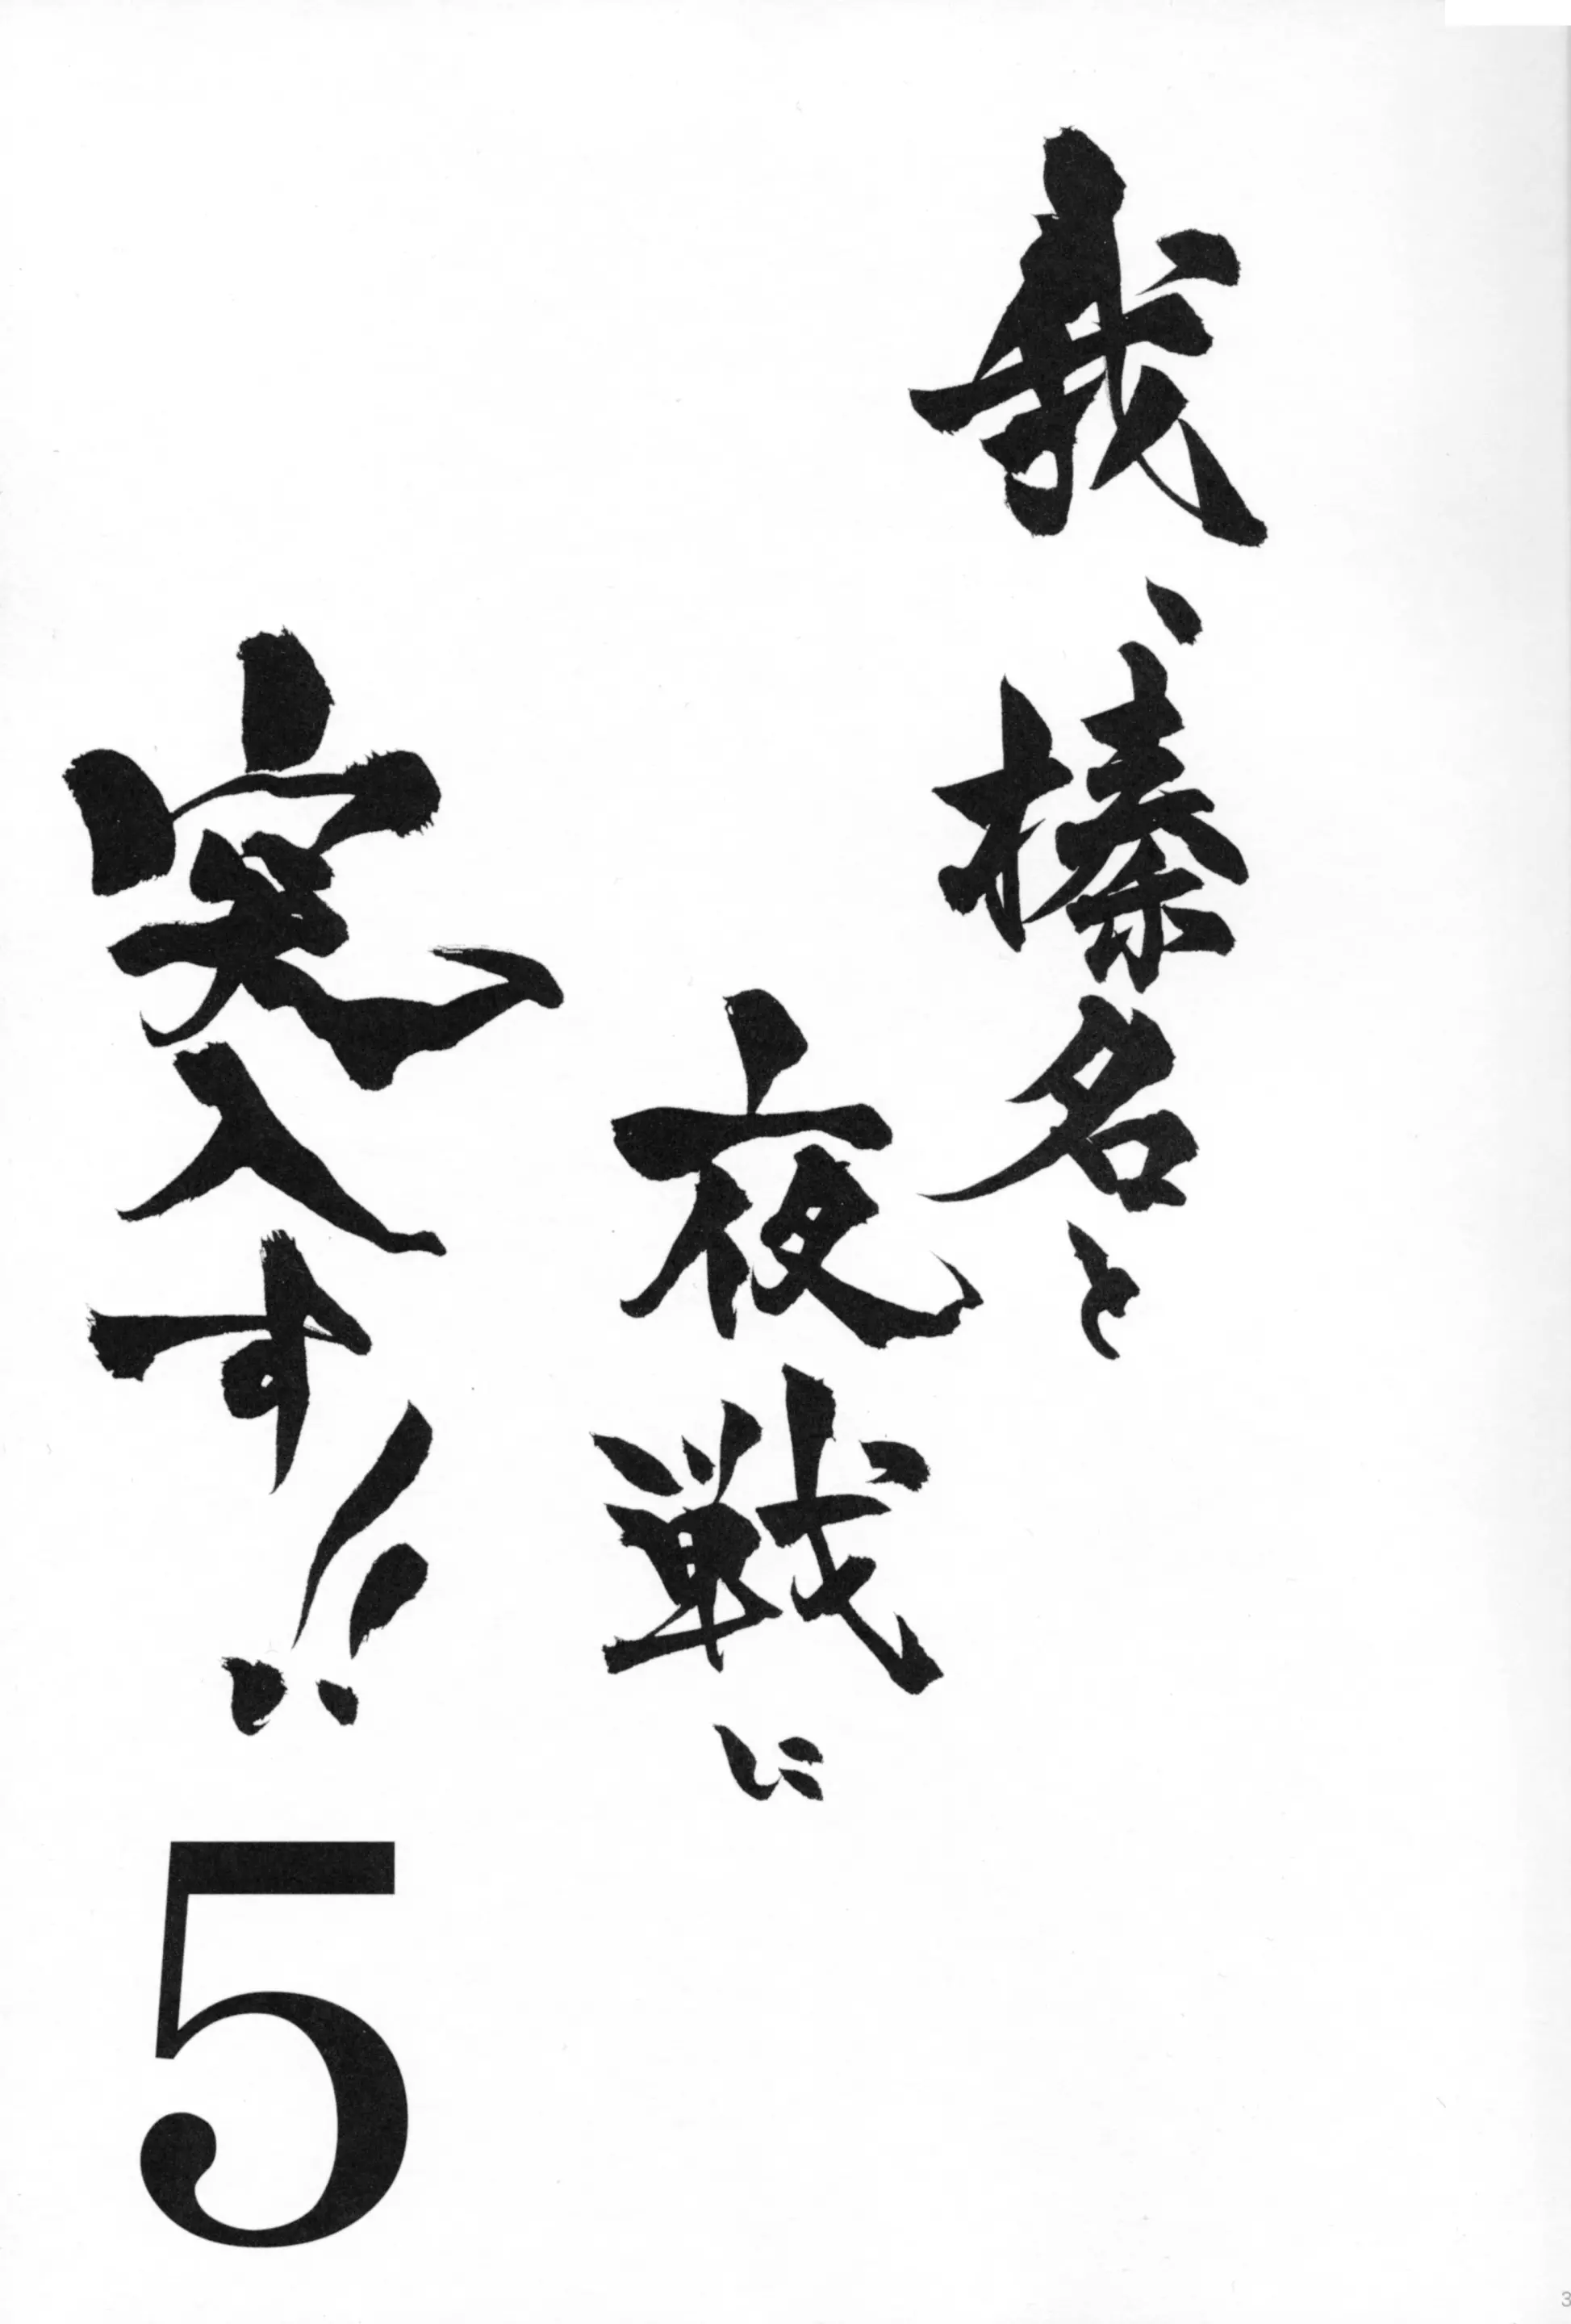 我、榛名と
夜戦に
突入す!!
5
3